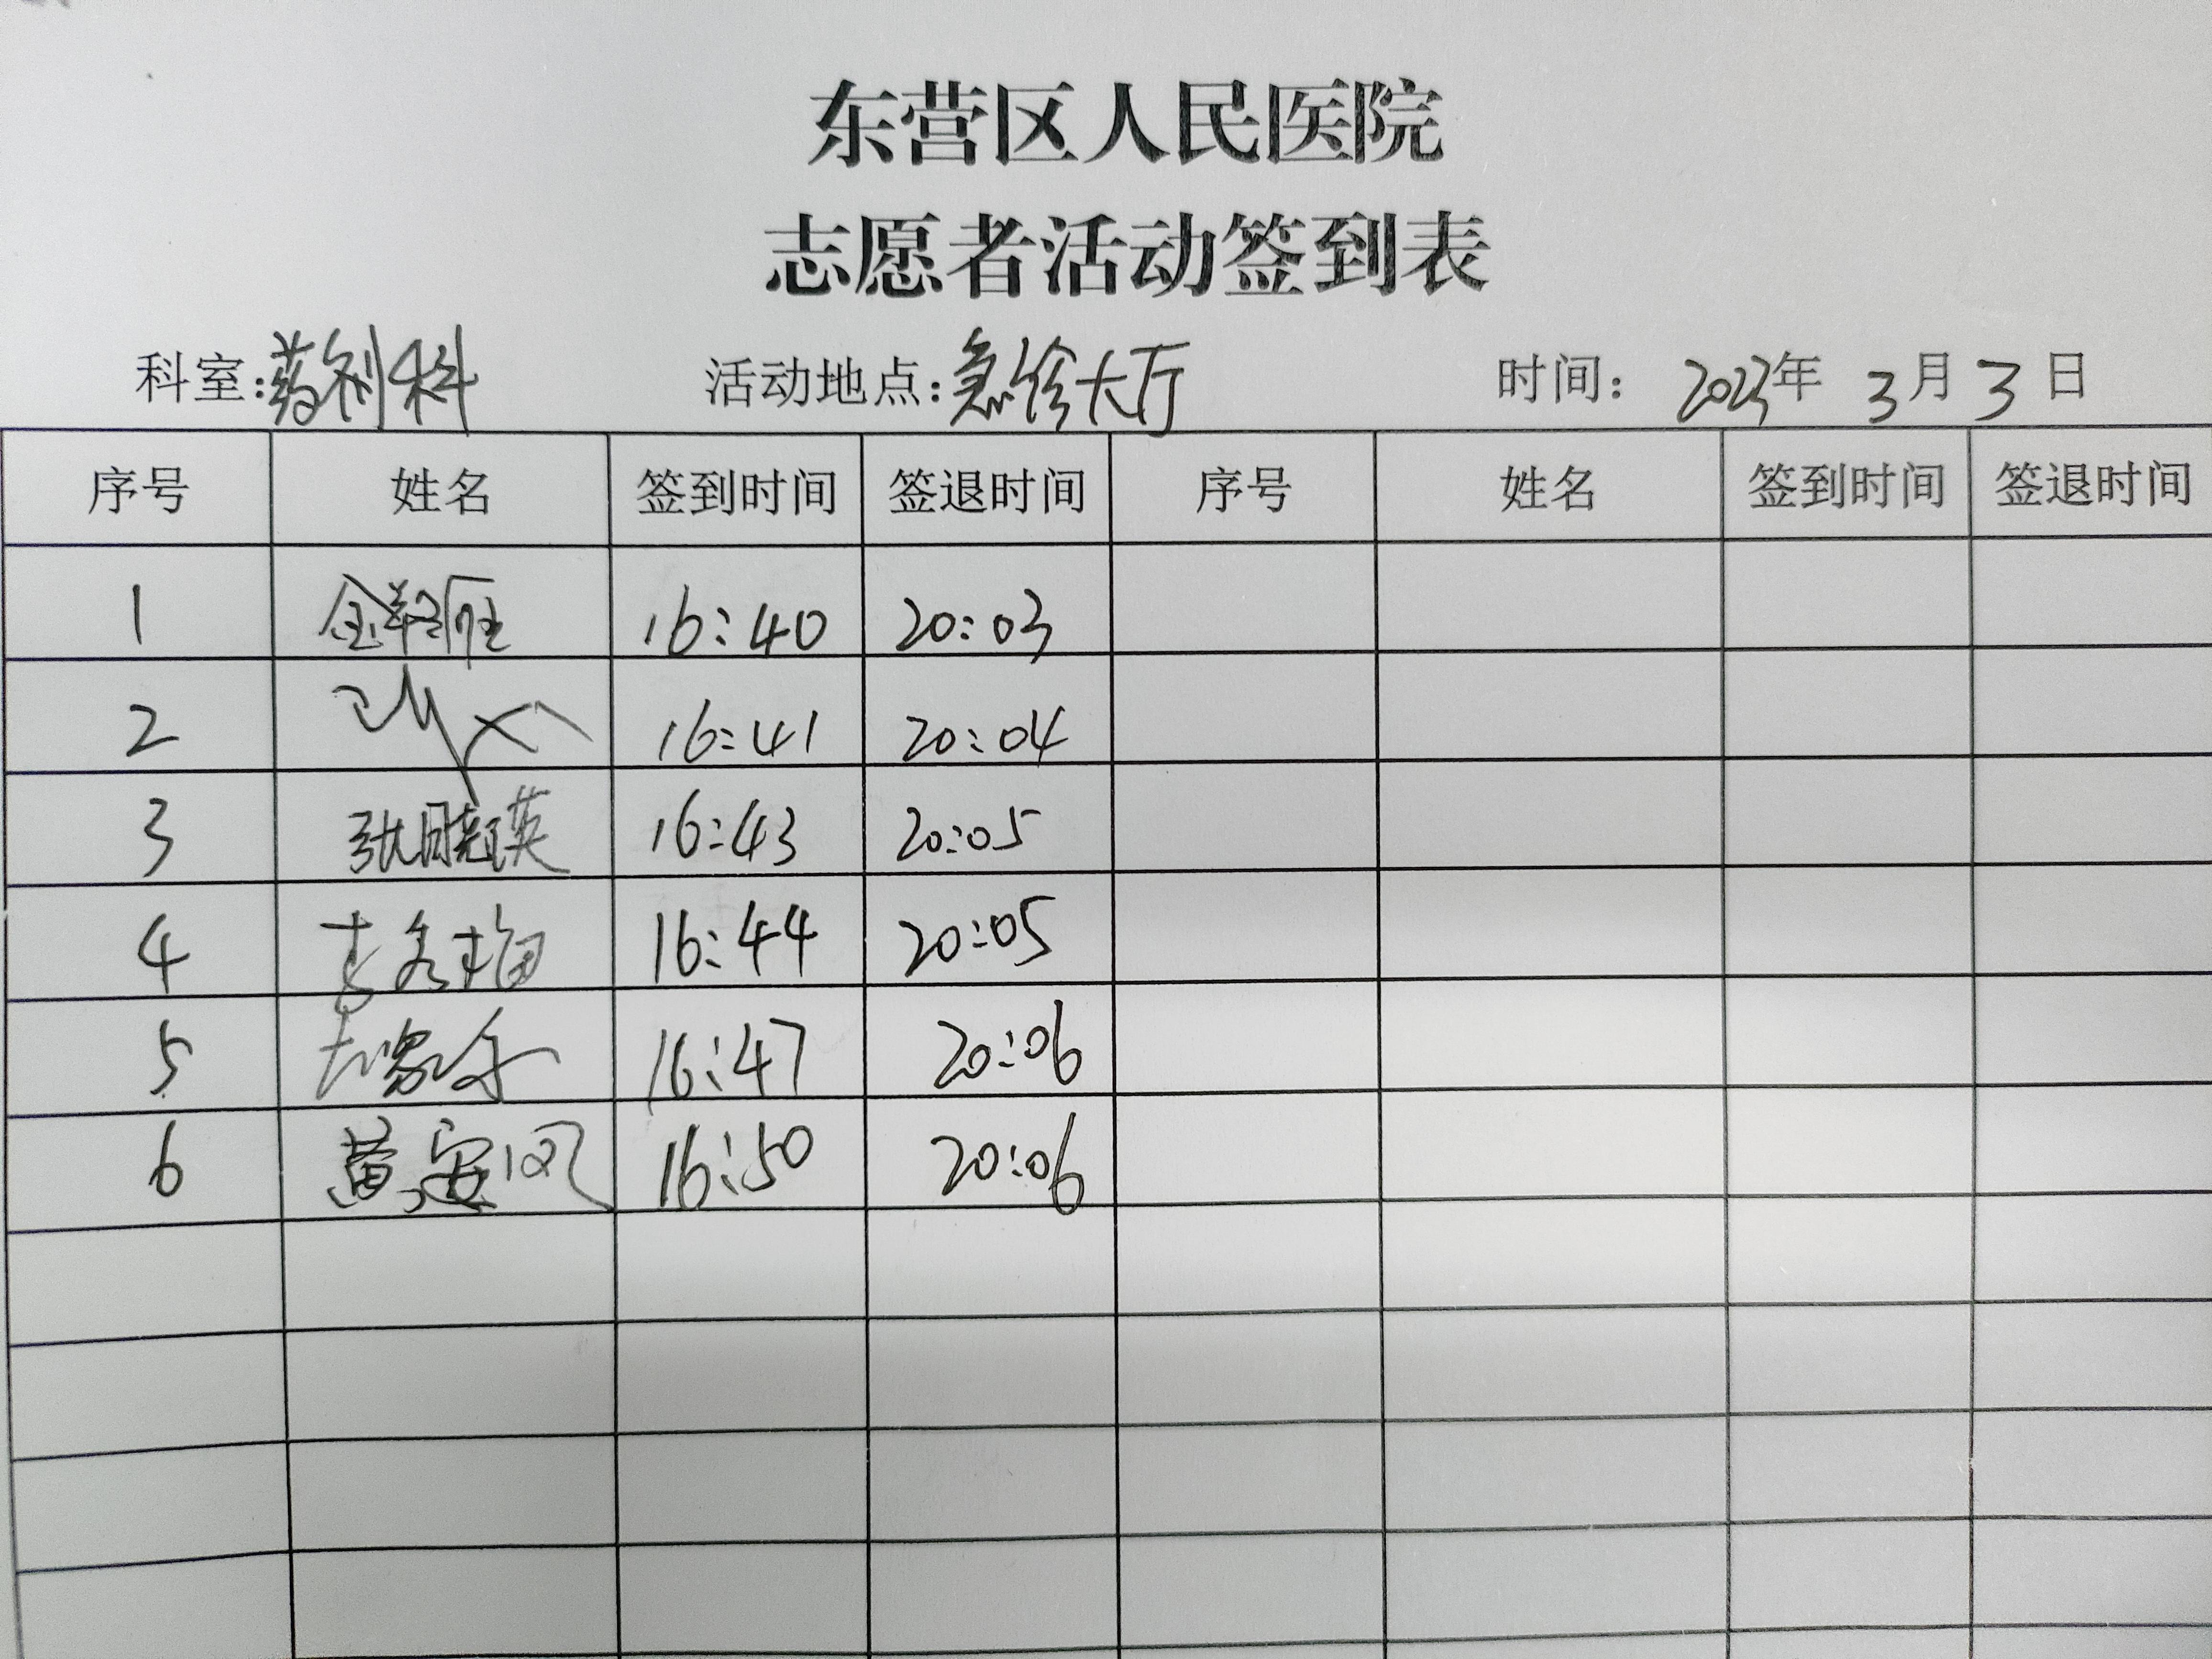 东营区人民医院
志愿者活动签到表
科室:药剂科 活动地点:急诊大厅 时间: 2023年 3月3日
序号 姓名 签到时间 签退时间 序号 姓名 签到时间 签退时间
1 16:40 20:03
2 16:41 20:04
3 张晓英 16:43 20:05
4 李冬梅 16:44 20:05
5 16:47 20:06
6 黄安风 16:50 20:06